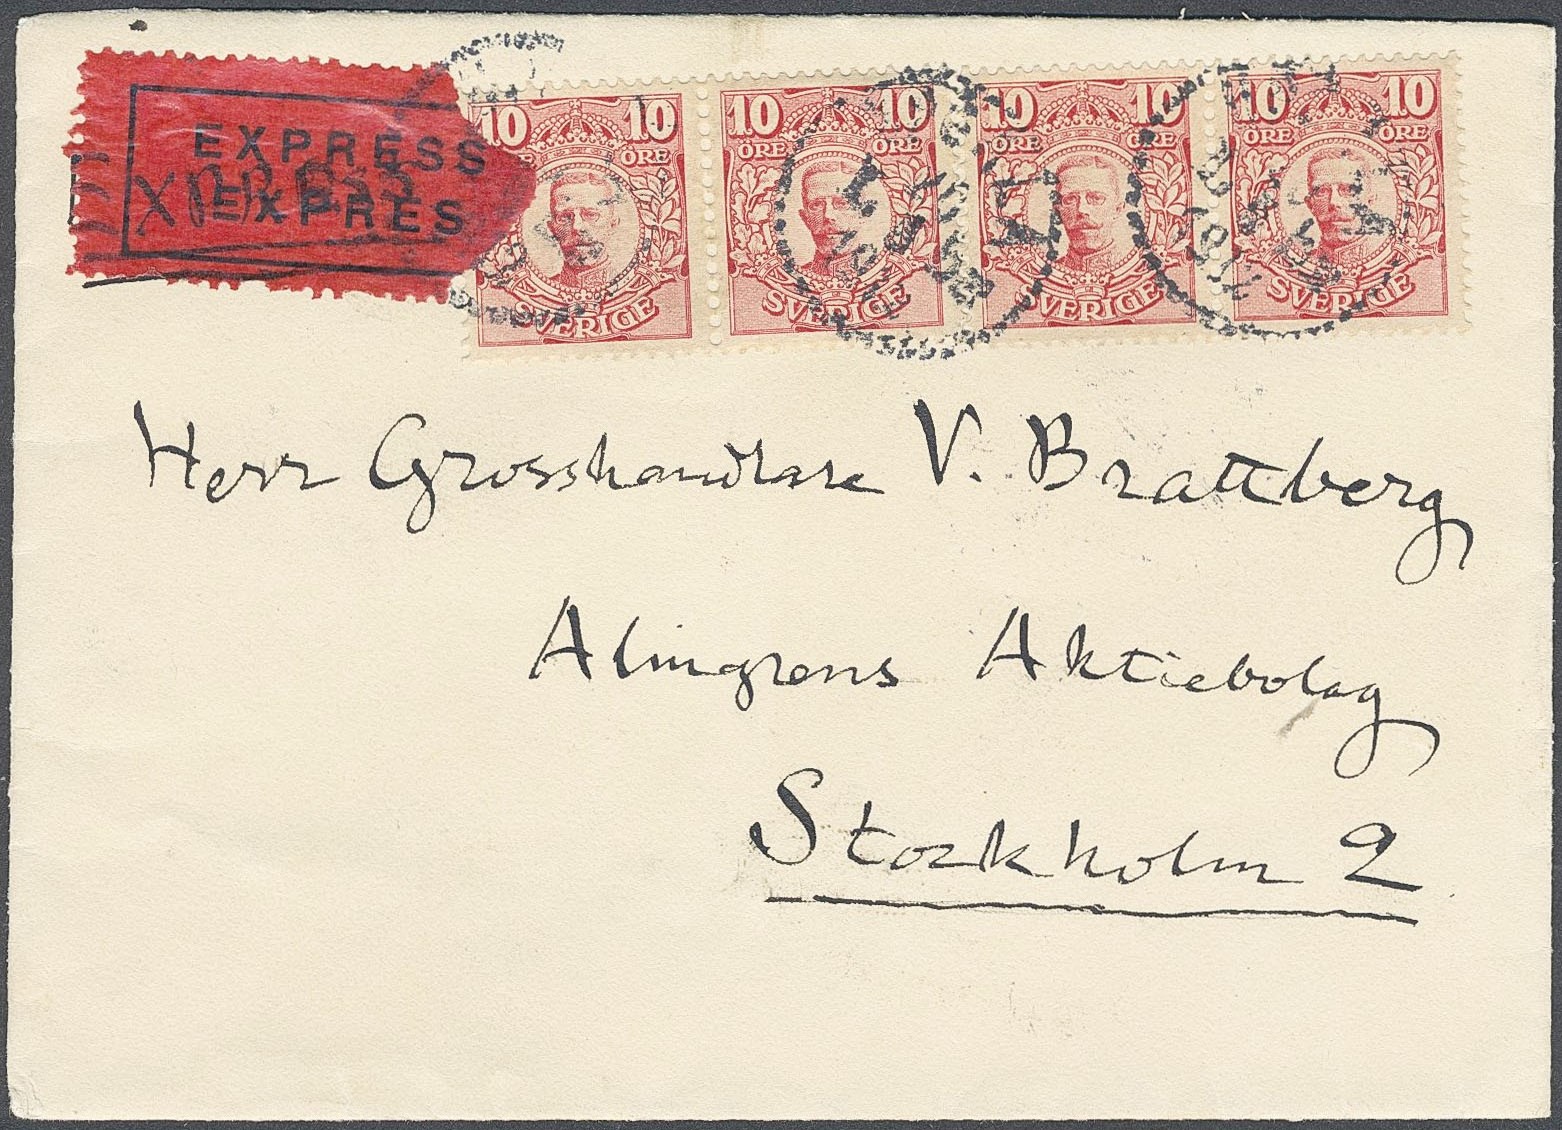 EXPRESS
EXPRÈS
10 10
ÖRE ÖRE
SVERIGE
10 10
ÖRE ÖRE
SVERIGE
10 10
ÖRE ÖRE
SVERIGE
10 10
ÖRE ÖRE
SVERIGE
Herr Grosshandlare V. Brattberg
Almgrens Aktiebolag
Stockholm 2